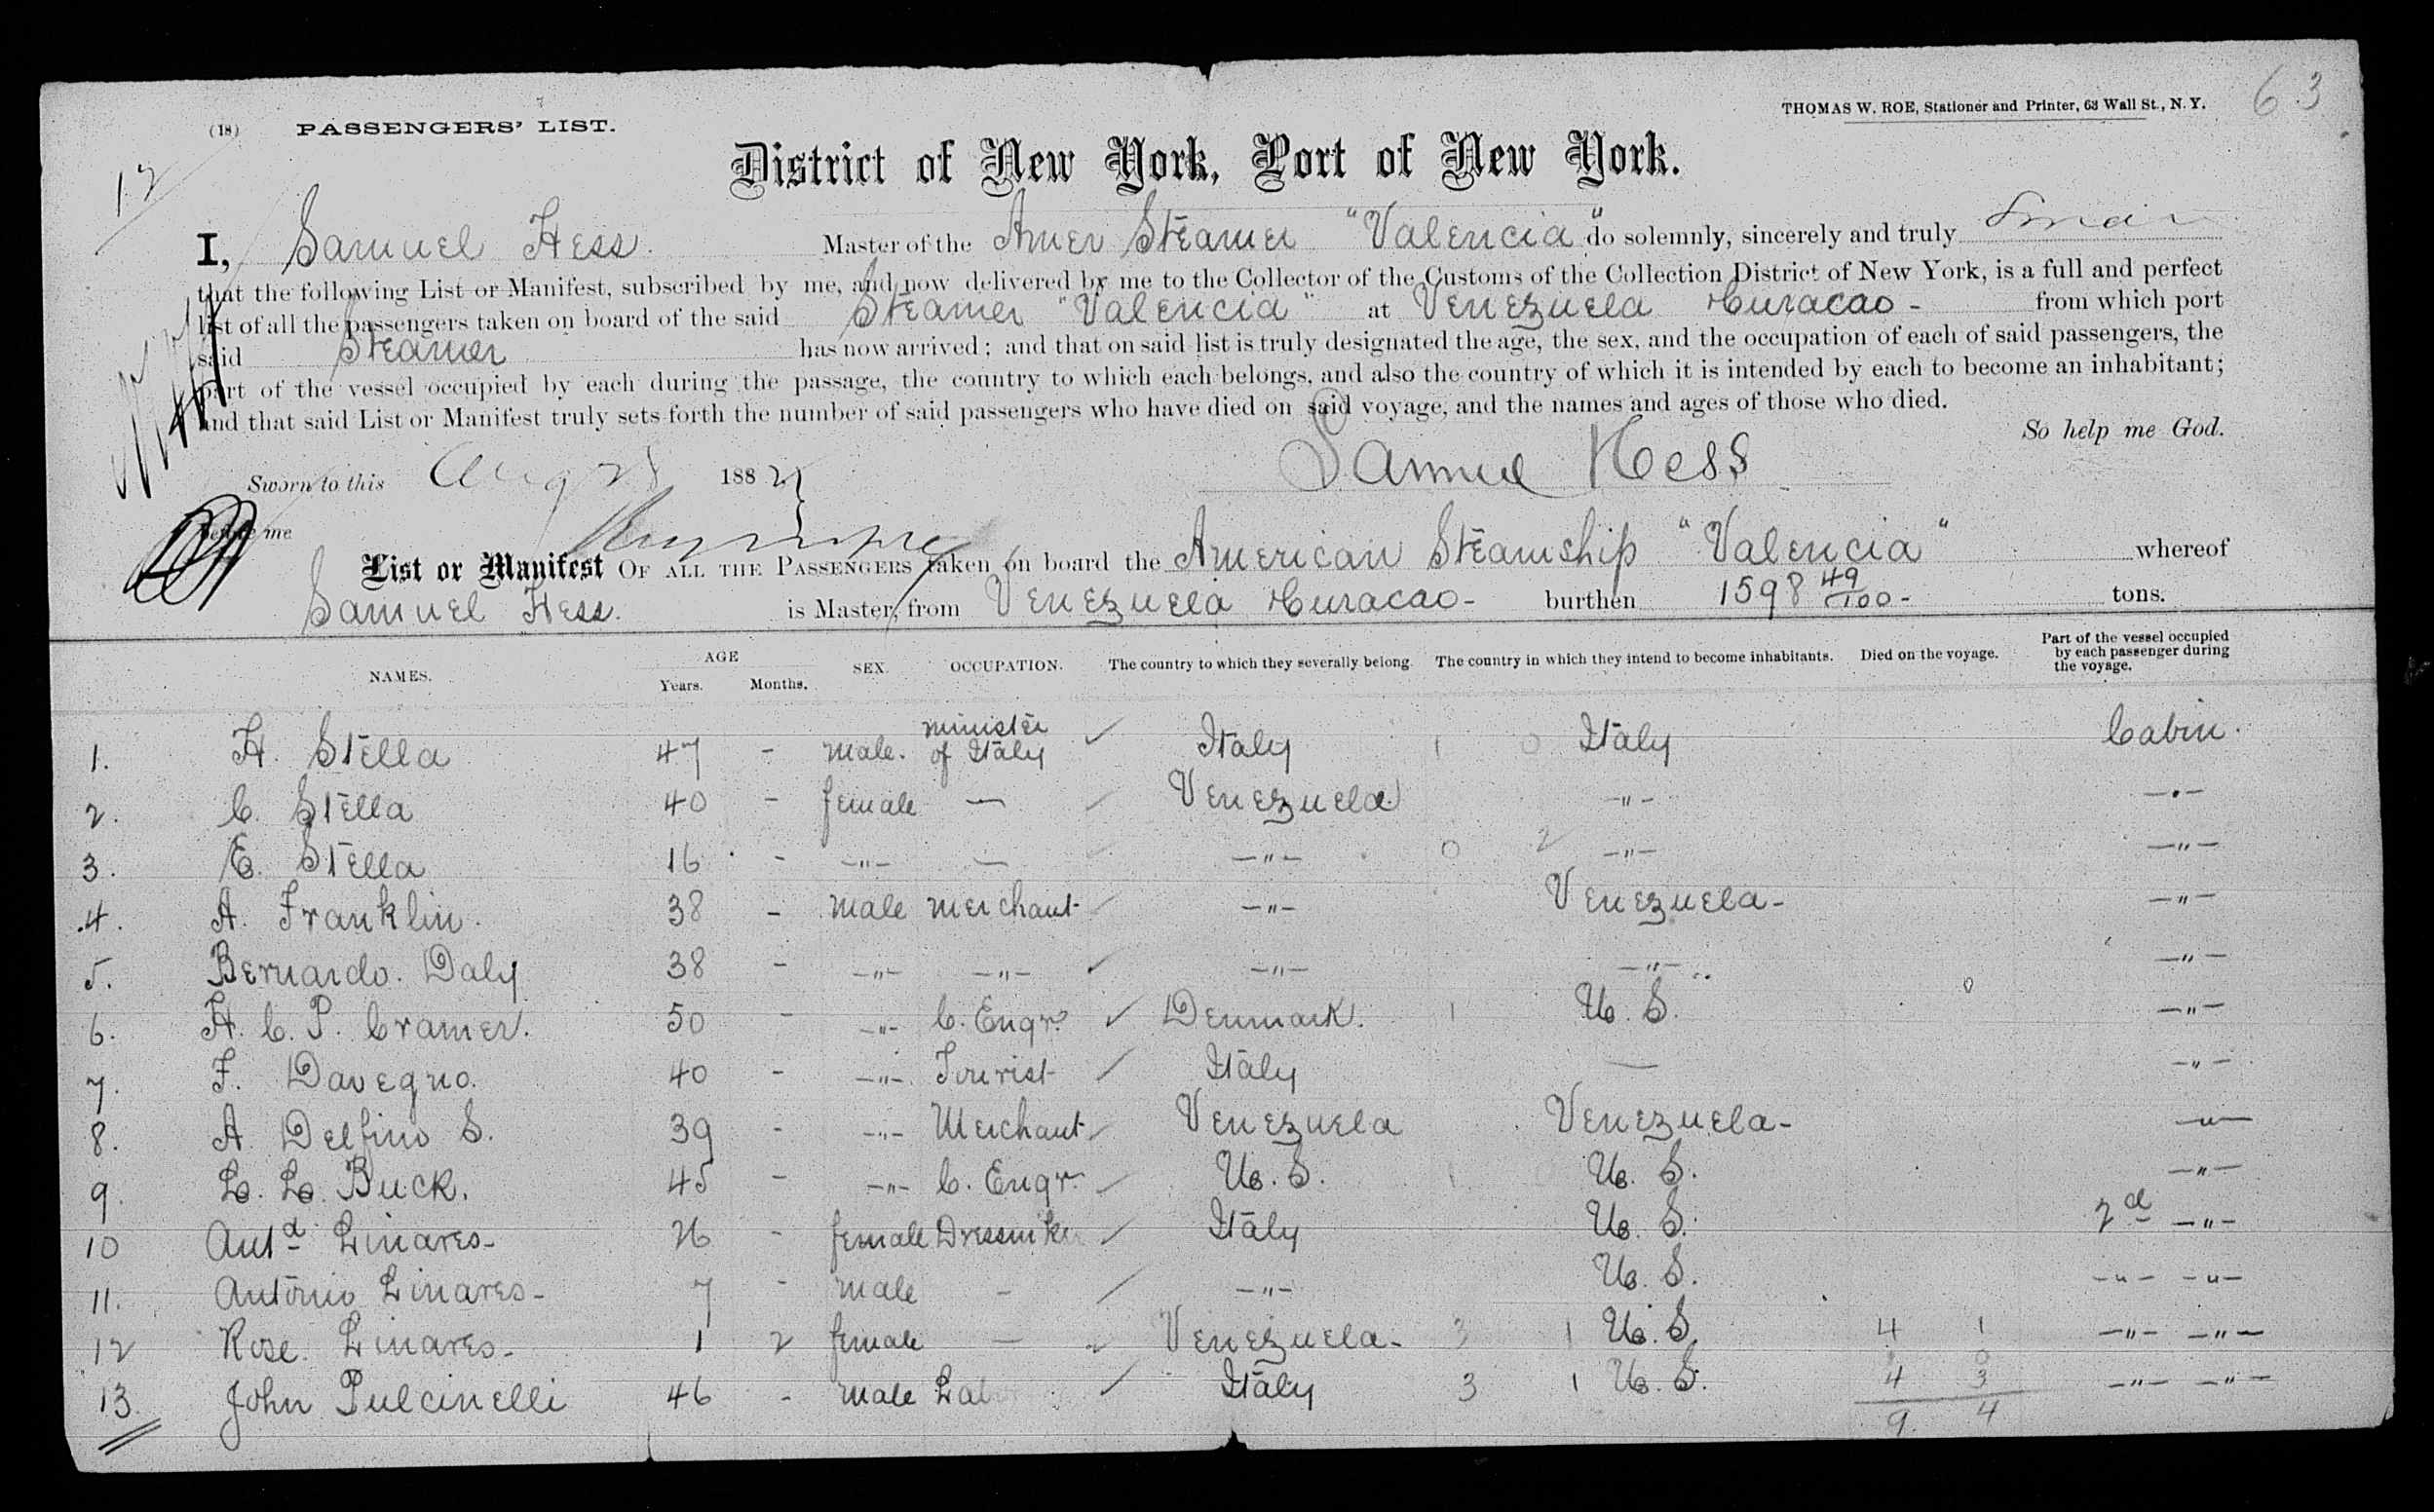 63
THOMAS W. ROE, Stationer and Printer, 63 Wall St., N. Y.
(18) PASSENGERS' LIST.
12
District of New York, Port of New York.
I, Samuel Hess. Master of the Amer Steamer "Valencia" do solemnly, sincerely and truly
that the following List or Manifest, subscribed by me, and now delivered by me to the Collector of the Customs of the Collection District of New York, is a full and perfect
list of all the passengers taken on board of the said Steamer "Valencia" at Venezuela Curacao - from which port
said Steamer has now arrived; and that on said list is truly designated the age, the sex, and the occupation of each of said passengers, the
part of the vessel occupied by each during the passage, the country to which each belongs, and also the country of which it is intended by each to become an inhabitant;
and that said List or Manifest truly sets forth the number of said passengers who have died on said voyage, and the names and ages of those who died.
So help me God.
Sworn to this Aug 188 Samuel Hess
before me
List or Manifest OF ALL THE PASSENGERS taken on board the American Steamship "Valencia" whereof
Samuel Hess. is Master, from Venezuela Curacao - burthen 1598 49/100 - tons.
NAMES. AGE Years. Months. SEX. OCCUPATION. The country to which they severally belong. The country in which they intend to become inhabitants. Died on the voyage. Part of the vessel occupied by each passenger during the voyage.
1. H. Stella 47 - male. minister of Italy Italy 1 0 Italy Cabin.
2. C. Stella 40 - female — Venezuela -"- -"-
3. E. Stella 16 - -"- — -"- 0 2 -"- -"-
4. A. Franklin. 38 - male merchant -"- Venezuela - -"-
5. Bernardo. Daly 38 - -"- -"- -"- -"- -"-
6. H. C. P. Cramer. 50 - -"- C. Engr. Denmark. 1 U. S. -"-
7. F. Davegno. 40 - -"- Tourist Italy — -"-
8. A. Delfino S. 39 - -"- Merchant Venezuela Venezuela - -"-
9. L. L. Buck. 45 - -"- C. Engr. U. S. 1 U. S. -"-
10 Anta Linares - 26 - female Dressmker Italy U. S. 2d -"-
11. Antonio Linares - 7 - male - -"- U. S. -"- -"-
12 Rose Linares - 1 2 female — Venezuela - 3 1 U. S. 4 1 -"- -"-
13. John Pulcinelli 46 - male Lab Italy 3 1 U. S. 4 3 -"- -"-
9. 4